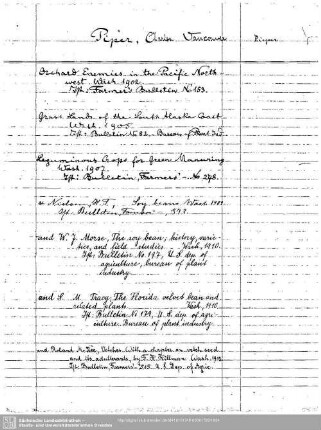 Piper, Charles Vancouver
Orchard Enemies in the Pacific North-
west. Wash. 1902.
Tfp: Farmers' Bulletin No 153.
Grass Lands of the South Alaska Coast
Wash. 1905
Tfp: Bulletin No 82. Bureau of Plant Ind.
Leguminous Crops for Green Manuring
Wash. 1907
Tfp: Bulletin, Farmers' - No 278.
u Nielsen, H. T., Soy beans Wash 1909
Tfp. Bulletin, Farmers' 373
and W. J. Morse, The soy bean; history, varie-
ties, and field studies. Wash, 1910.
Tfp: Bulletin No 197, U. S. dep of
agriculture, bureau of plant
industry
and S. M. Tracy, The Florida velvet bean and
related plants. Wash, 1910.
Tfp: Bulletin No 179, U. S. dep of agri-
culture. Bureau of plant industry
and Roland McKee, Vetches. With a chapter on vetch seed
and its adulterants, by F. H. Hillman Wash, 1912
Tfp: Bulletin, Farmers' 515 U. S. Dep. of Agric.